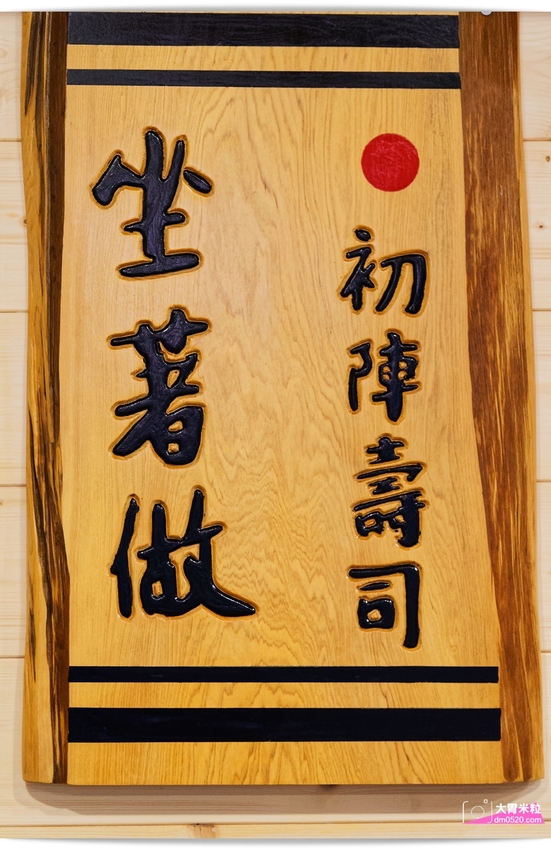 初陣壽司
坐著做
大胃米粒
dm0520.com